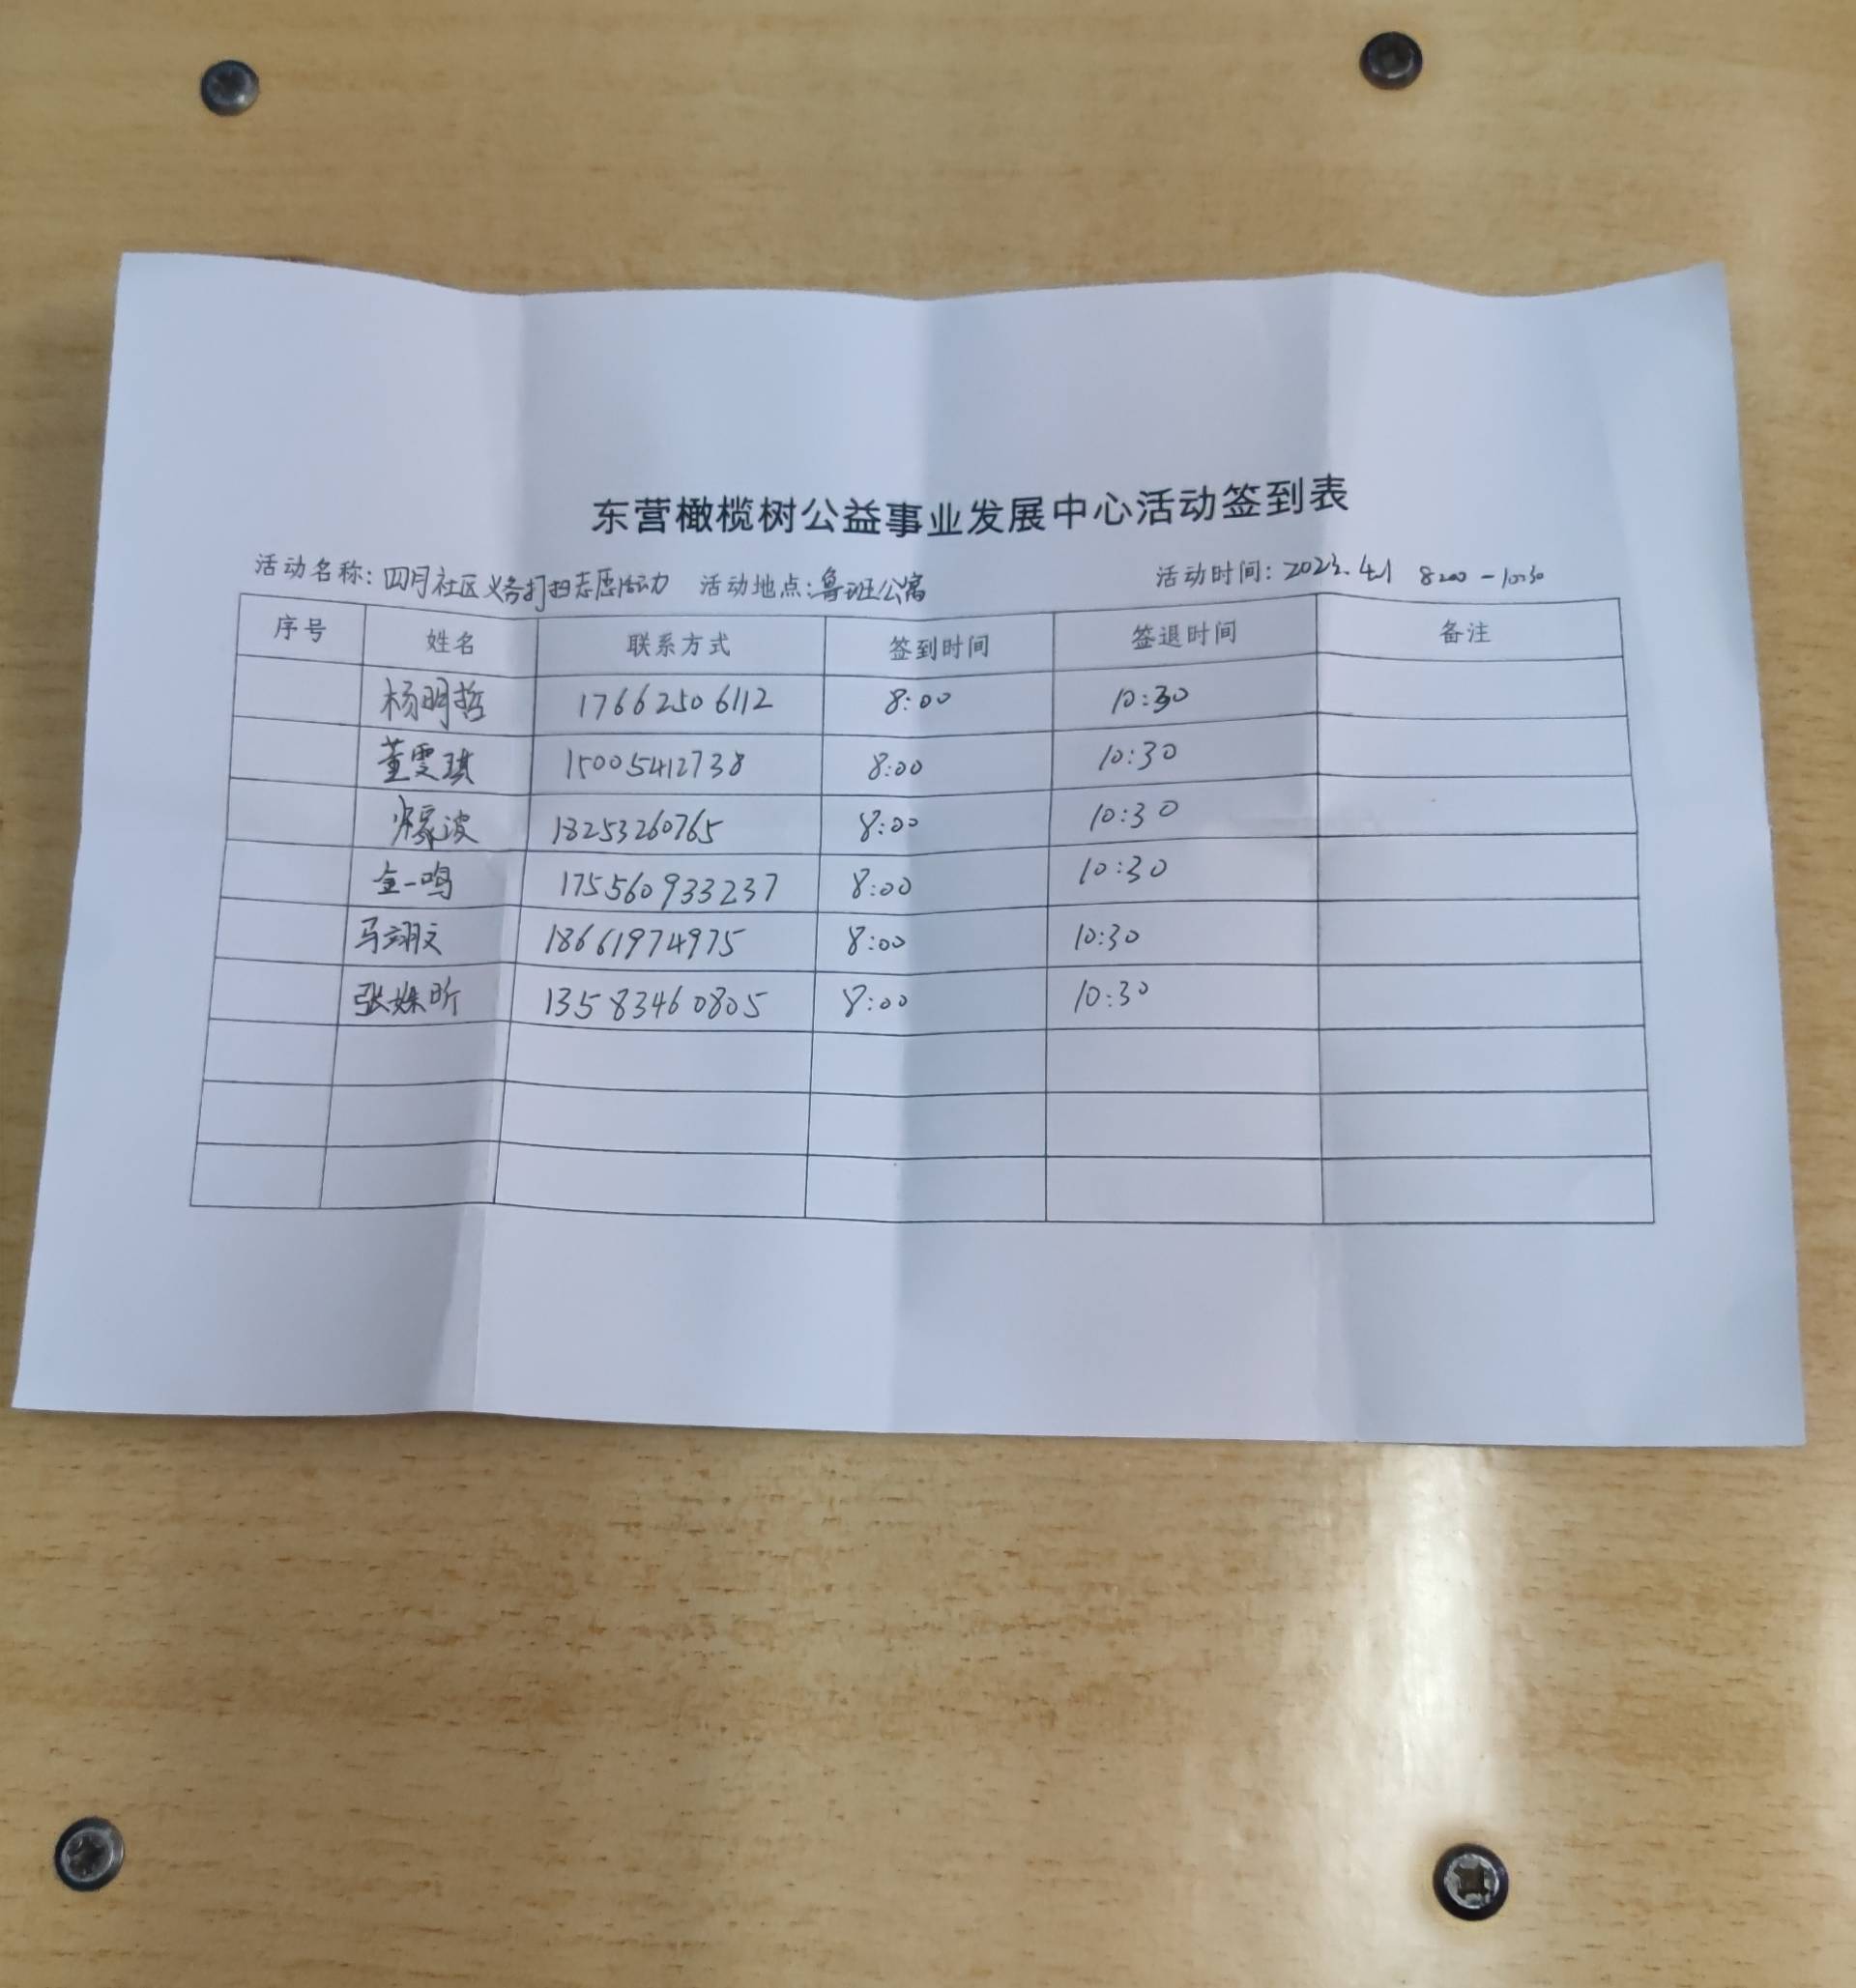 东营橄榄树公益事业发展中心活动签到表
活动名称:四月社区义务打扫志愿活动 活动地点:鲁班公寓 活动时间:2023.4.1 8:00-10:30
序号 姓名 联系方式 签到时间 签退时间 备注
杨明哲 17662506112 8:00 10:30
董雯琪 15005412738 8:00 10:30
波 18253260765 8:00 10:30
金一鸣 175560933237 8:00 10:30
马翊文 18661974975 8:00 10:30
张姝昕 13583460805 8:00 10:30